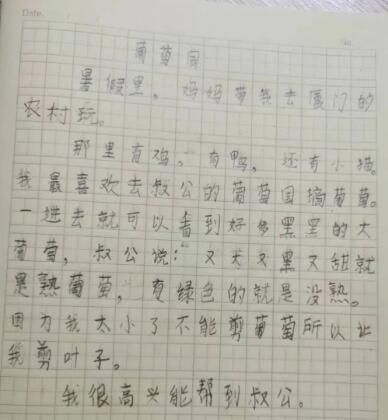 Date.
No.
葡萄园
暑假里。妈妈带我去厦门的
农村玩。
那里有鸡，有鸭，还有小猫。
我最喜欢去叔公的葡萄园摘葡萄。
一进去就可以看到好多黑黑的大
葡萄，叔公说：又大又黑又甜就
是熟葡萄，有绿色的就是没熟。
因为我太小了不能剪葡萄所以让
我剪叶子。
我很高兴能帮到叔公。